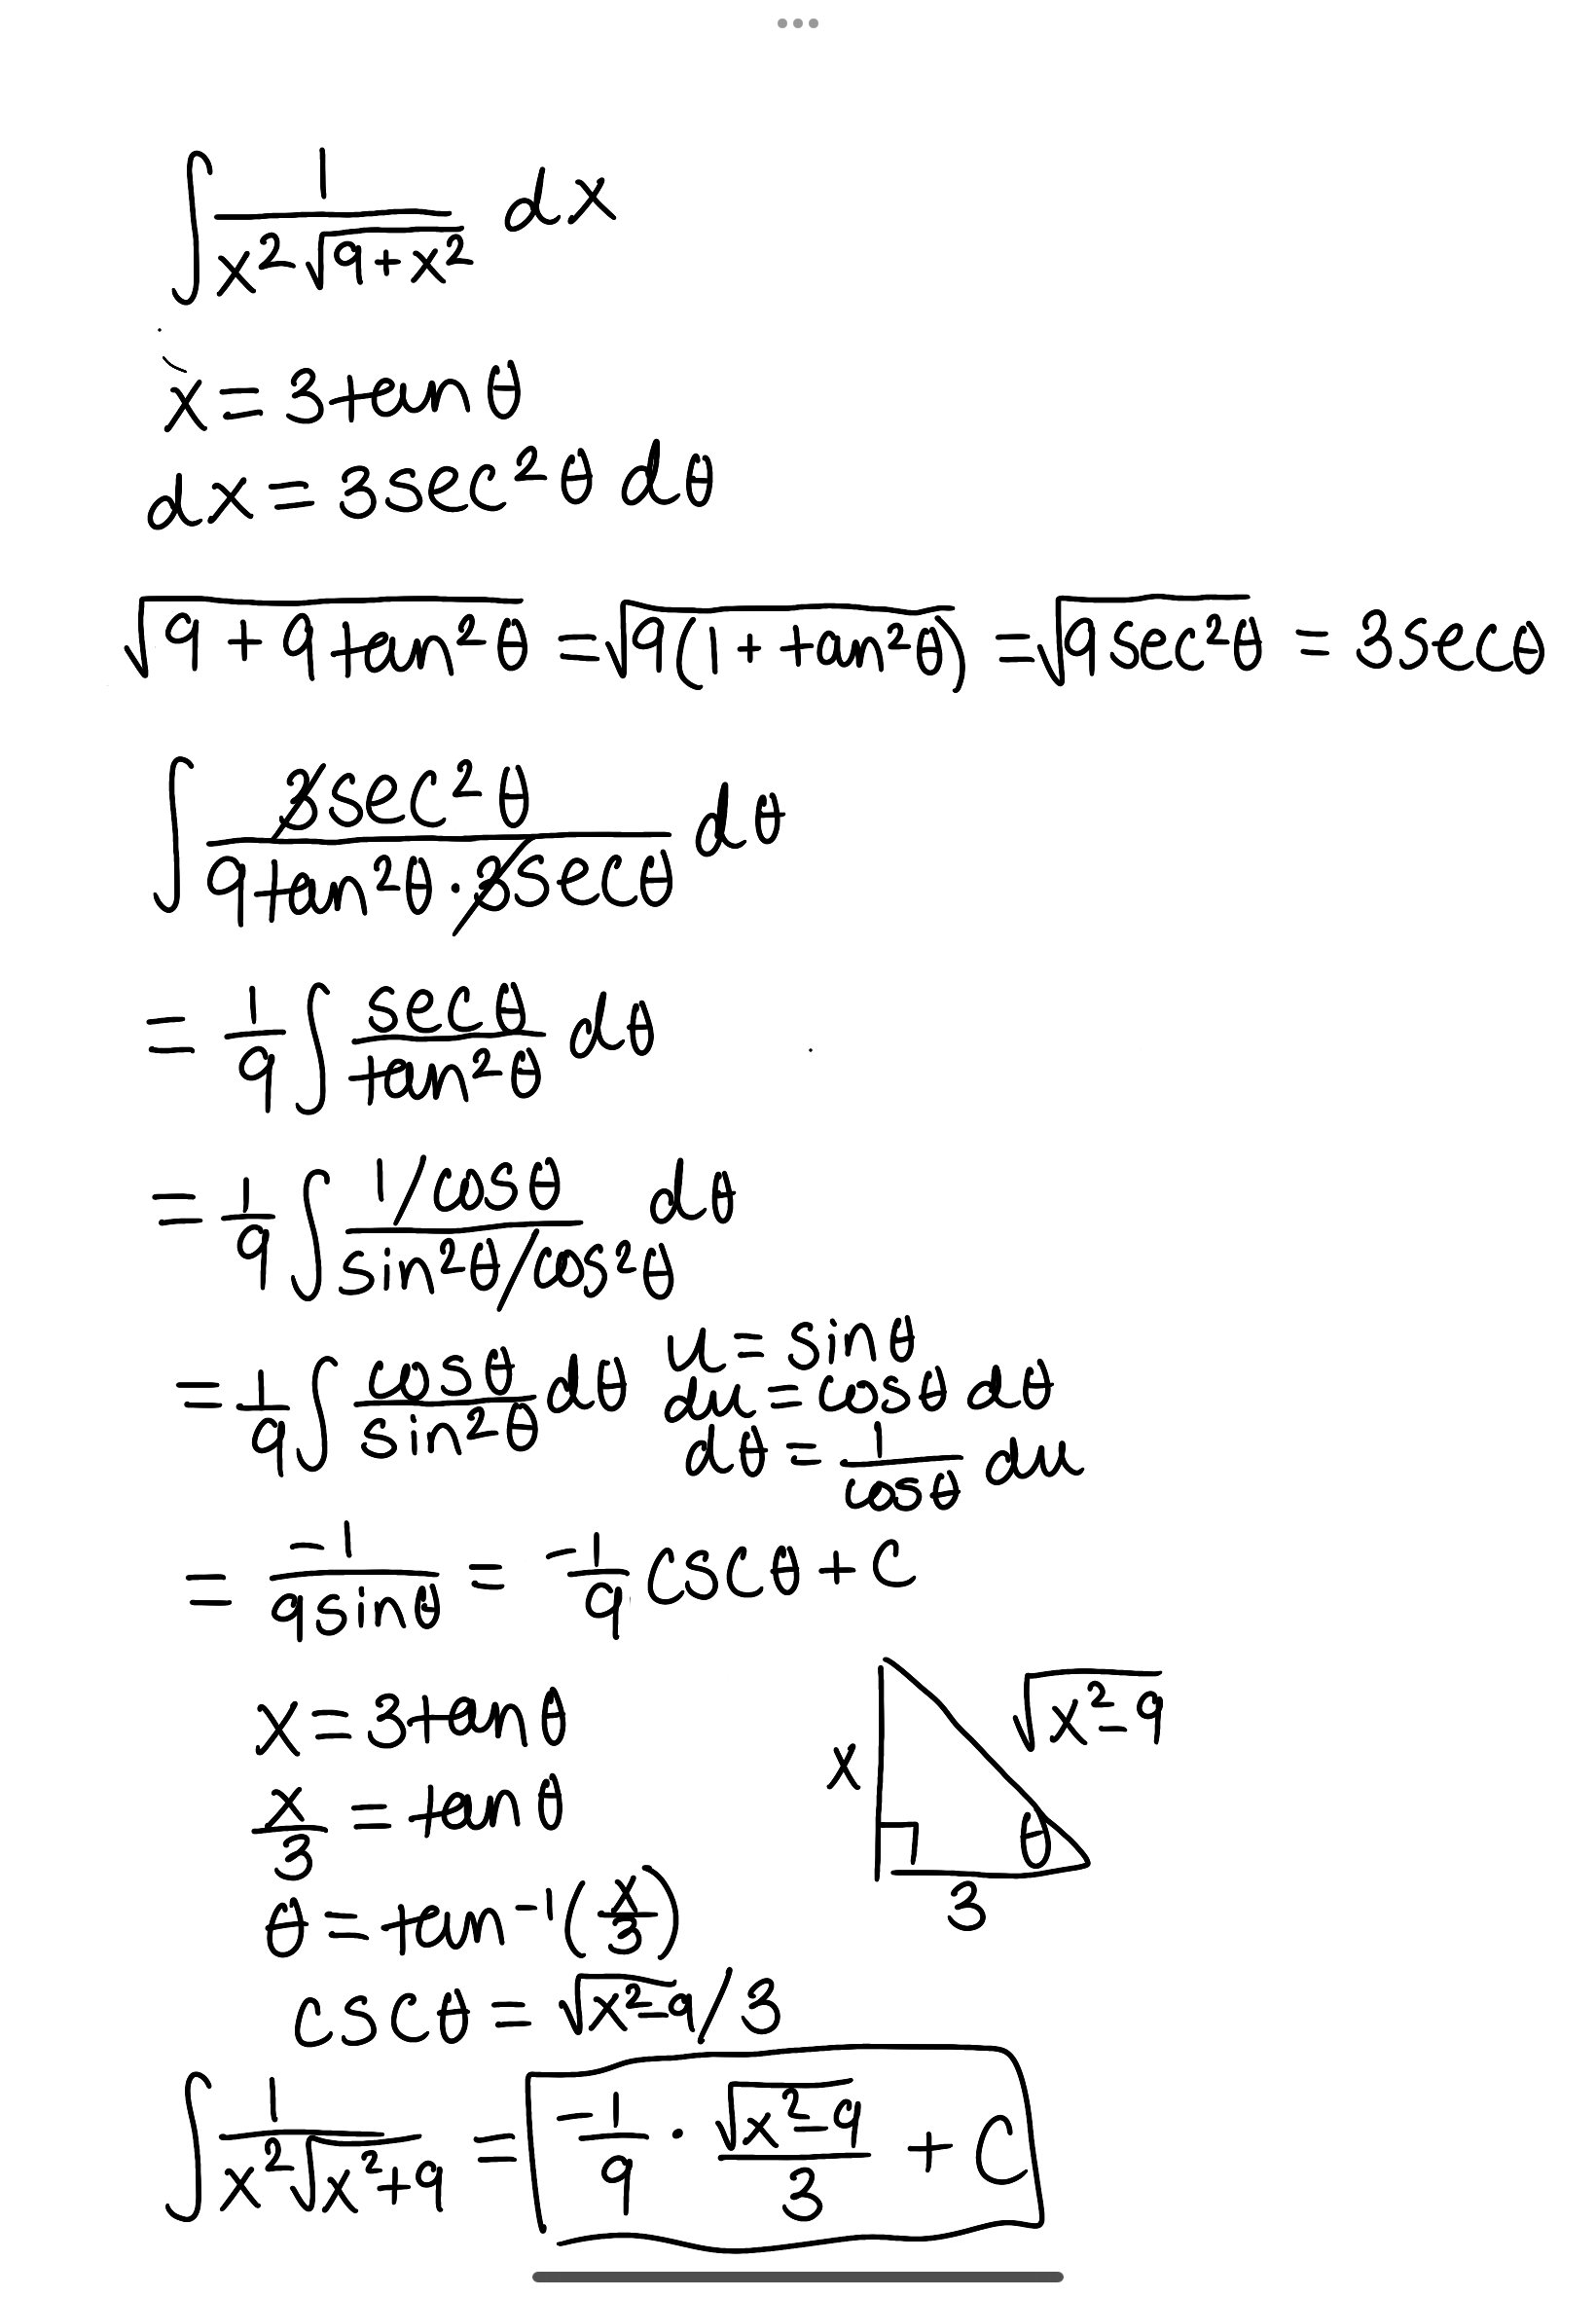 ∫ 1/(x²√(9+x²)) dx
x = 3tanθ
dx = 3sec²θ dθ
√(9 + 9tan²θ) = √(9(1 + tan²θ)) = √(9sec²θ) = 3secθ
∫ 3sec²θ/(9tan²θ · 3secθ) dθ
= 1/9 ∫ secθ/tan²θ dθ
= 1/9 ∫ (1/cosθ)/(sin²θ/cos²θ) dθ
= 1/9 ∫ cosθ/sin²θ dθ
u = sinθ
du = cosθ dθ
dθ = 1/cosθ du
= -1/(9sinθ) = -1/9 cscθ + C
x = 3tanθ
x/3 = tanθ
θ = tan⁻¹(x/3)
x
√(x²-9)
θ
3
cscθ = √(x²-9)/3
∫ 1/(x²√(x²+9)) = -1/9 · √(x²-9)/3 + C